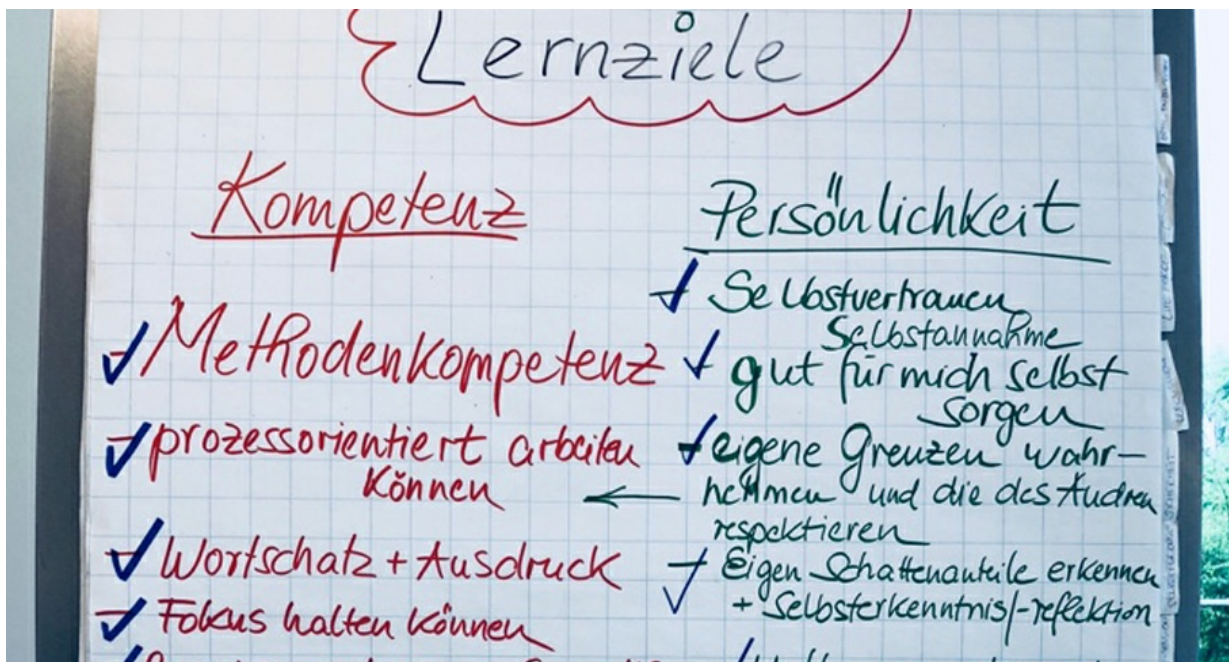 Lernziele
Kompetenz
- Methodenkompetenz
- prozessorientiert arbeiten
können
- Wortschatz + Ausdruck
- Fokus halten können
Persönlichkeit
- Selbstvertrauen
Selbstannahme
- gut für mich selbst
sorgen
- eigene Grenzen wahr-
nehmen und die des Andren
respektieren
- Eigen Schattenanteile erkennen
+ Selbsterkenntnis/-reflektion